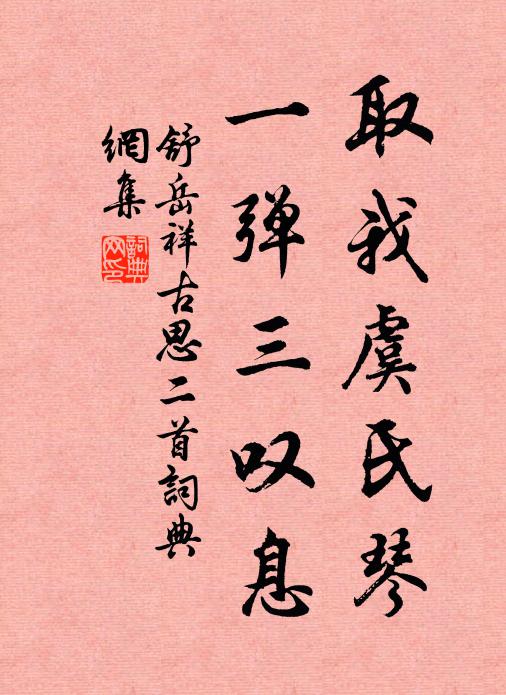 取我虞氏琴
一弹三叹息
舒岳祥古思二首詞典
網集
詞典
网印